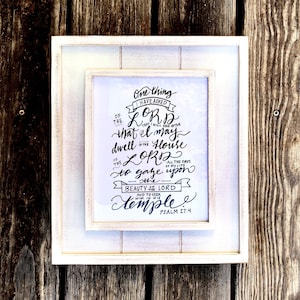 One thing
I HAVE ASKED
OF THE LORD
that I may
dwell in the House
OF THE LORD ALL THE DAYS OF MY LIFE
to gaze upon
the
BEAUTY of the LORD
AND TO SEEK
temple!
PSALM 27:4